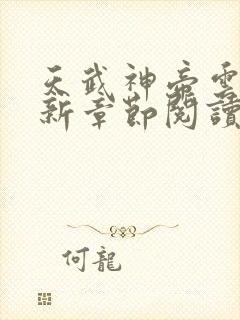 天武神帝雲
新章節閱讀
何龍